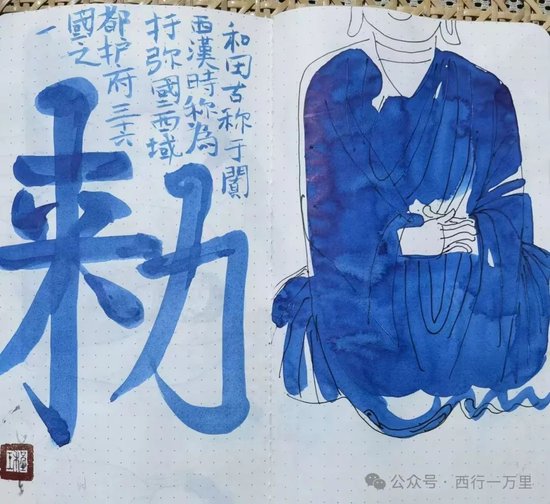 和田古称于闐
西漢時称為
扜弥國西域
都护府三六
國之
一
勑
公众号·西行一万里